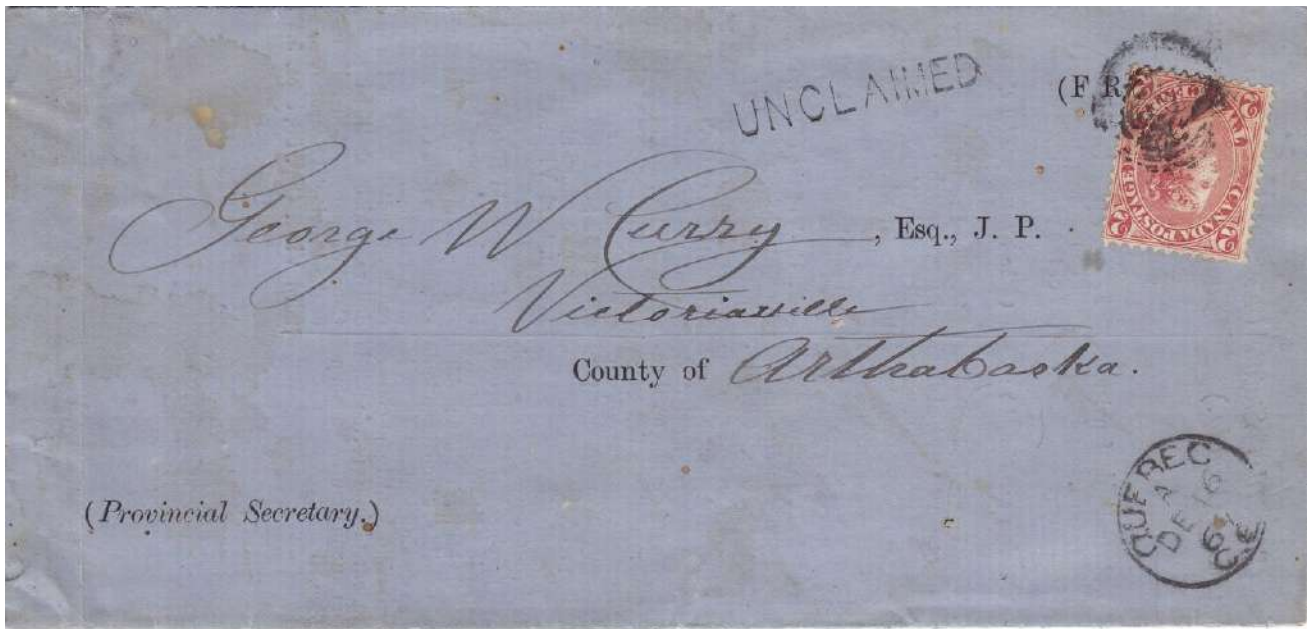 UNCLAIMED
(F. R.
2 2
CANADA POSTAGE
2 2
George W Curry, Esq., J. P.
Victoriaville
County of Arthabaska.
(Provincial Secretary.)
QUEBEC
A
DE 16
67
C.E